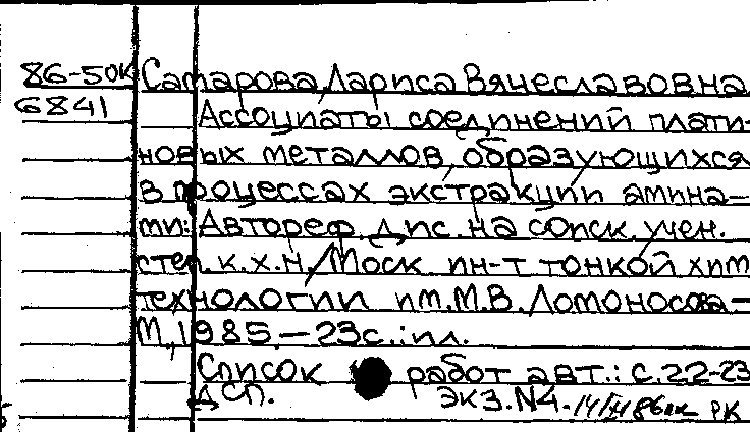 86-50к Сатарова, Лариса Вячеславовна
6841 Ассоциаты соединений плати-
новых металлов, образующихся
в процессах экстракции амина-
ми: Автореф. дис. на соиск. учен.
степ. к.х.н./Моск ин-т тонкой хим
технологии им. М.В. Ломоносова-
М, 1985.-23с.: ил.
Список работ авт.: с.22-23
ДСП. ЭКЗ.N4. РК